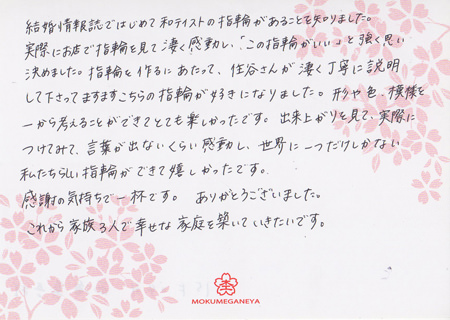 結婚情報誌ではじめて和テイストの指輪があることを知りました。
実際にお店で指輪を見て凄く感動し、「この指輪がいい」と強く思い
決めました。指輪を作るにあたって、住谷さんが凄く丁寧に説明
して下さってますますこちらの指輪が好きになりました。形や色、模様を
一から考えることができてとても楽しかったです。出来上がりを見て、実際に
つけてみて、言葉が出ないくらい感動し、世界に一つだけしかない
私たちらしい指輪ができて嬉しかったです。
感謝の気持ちで一杯です。ありがとうございました。
これから家族3人で幸せな家庭を築いていきたいです。
MOKUMEGANEYA